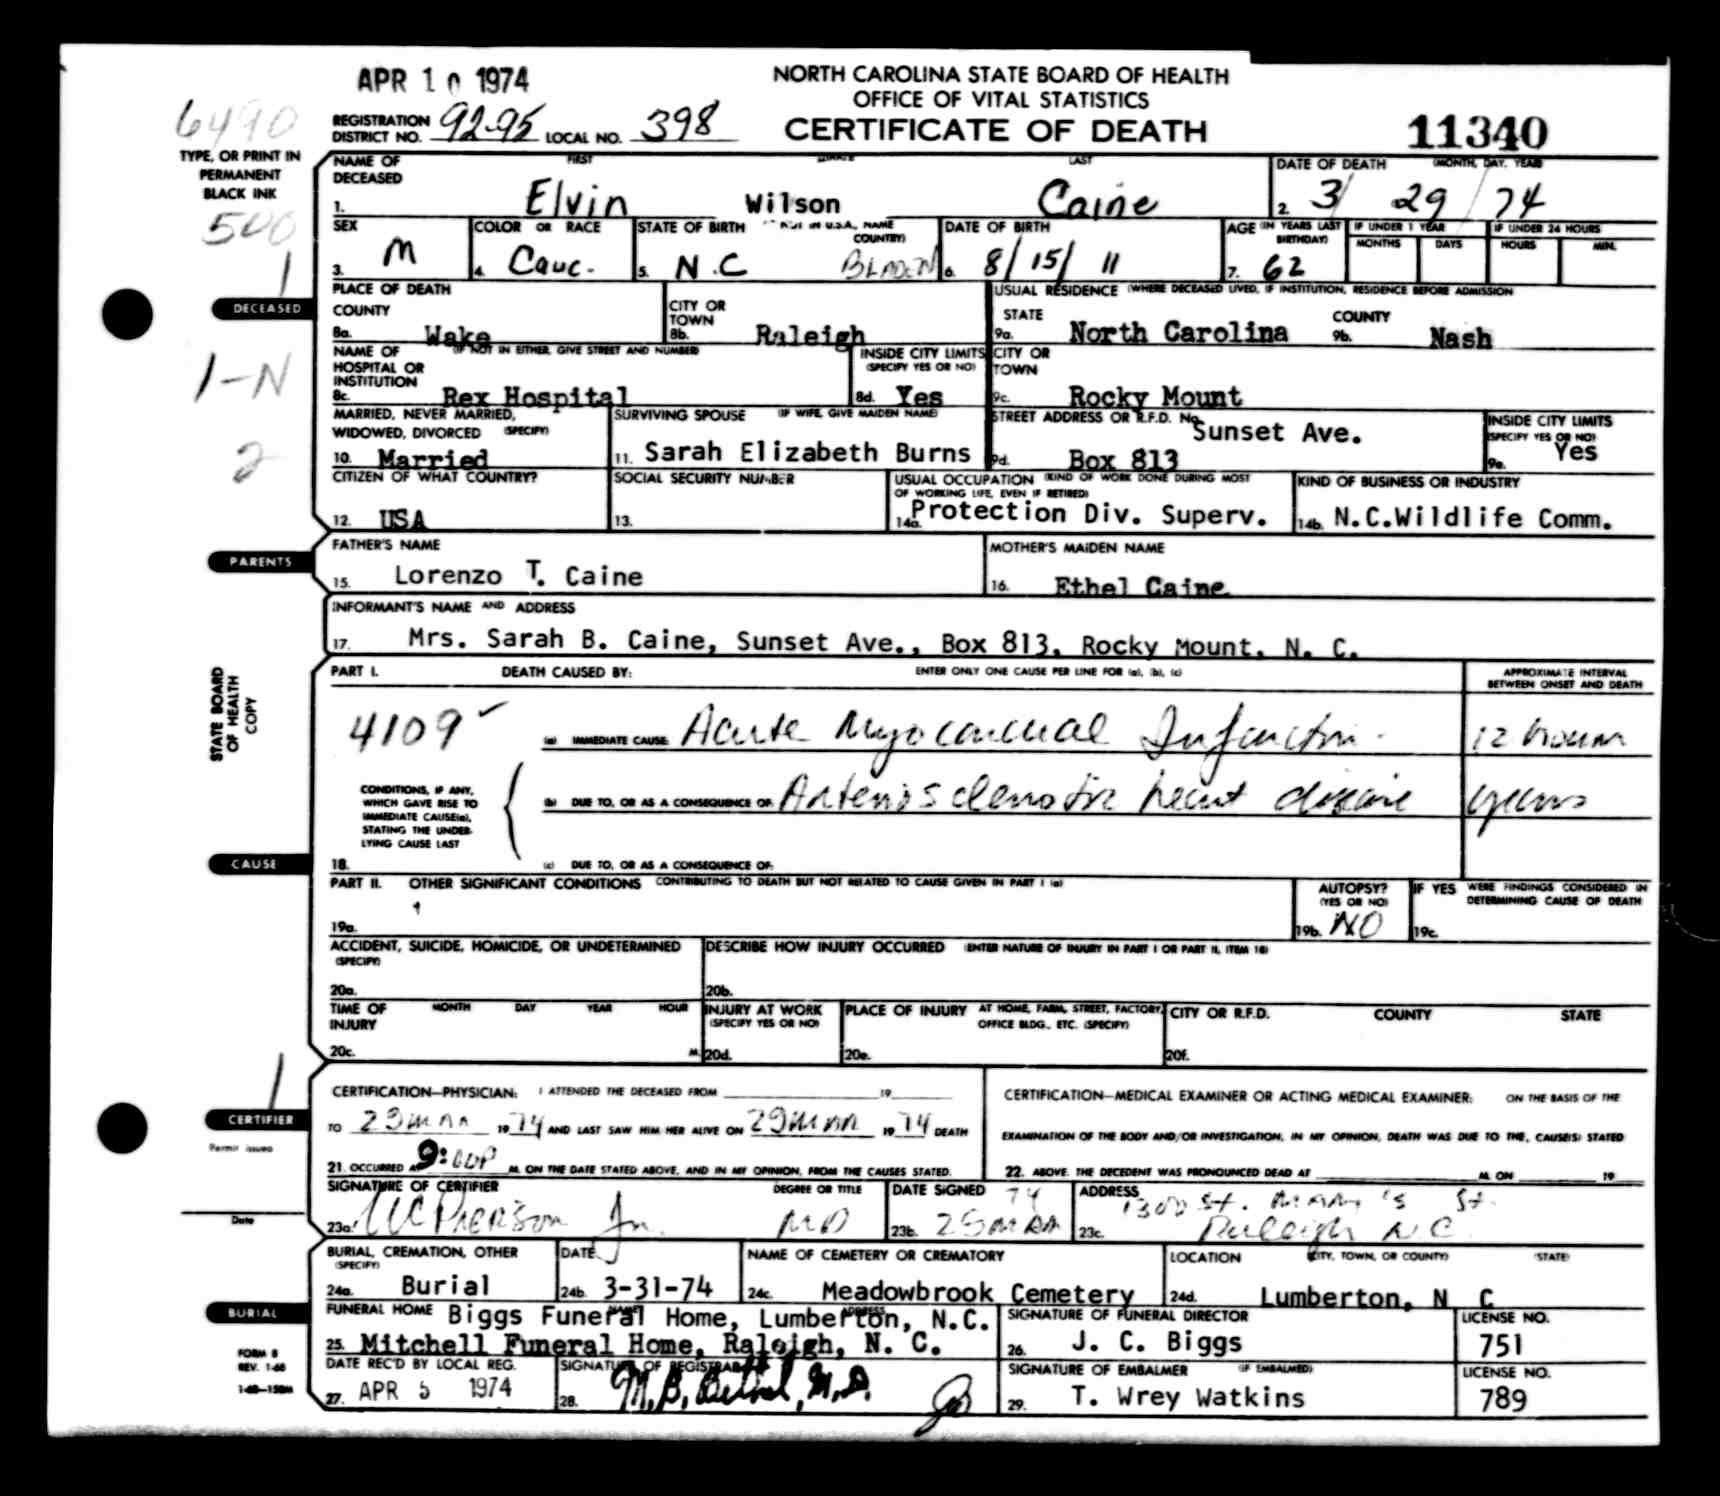 APR 10 1974
NORTH CAROLINA STATE BOARD OF HEALTH
OFFICE OF VITAL STATISTICS
CERTIFICATE OF DEATH
11340
6490
REGISTRATION DISTRICT NO. 92-95 LOCAL NO. 398
TYPE, OR PRINT IN
PERMANENT
BLACK INK
500
1
1-N
2
DECEASED
NAME OF DECEASED FIRST MIDDLE LAST
1. Elvin Wilson Caine
DATE OF DEATH (MONTH, DAY, YEAR)
2. 3/29/74
SEX
3. M
COLOR OR RACE
4. Cauc.
STATE OF BIRTH (IF NOT IN U.S.A., NAME COUNTRY)
5. N.C BLADEN
DATE OF BIRTH
6. 8/15/11
AGE (IN YEARS LAST BIRTHDAY)
7. 62
IF UNDER 1 YEAR
MONTHS DAYS
IF UNDER 24 HOURS
HOURS MIN.
PLACE OF DEATH
COUNTY
8a. Wake
CITY OR TOWN
8b. Raleigh
USUAL RESIDENCE (WHERE DECEASED LIVED, IF INSTITUTION, RESIDENCE BEFORE ADMISSION
STATE
9a. North Carolina
COUNTY
9b. Nash
NAME OF HOSPITAL OR INSTITUTION (IF NOT IN EITHER, GIVE STREET AND NUMBER)
8c. Rex Hospital
INSIDE CITY LIMITS (SPECIFY YES OR NO)
8d. Yes
CITY OR TOWN
9c. Rocky Mount
MARRIED, NEVER MARRIED, WIDOWED, DIVORCED (SPECIFY)
10. Married
SURVIVING SPOUSE (IF WIFE, GIVE MAIDEN NAME)
11. Sarah Elizabeth Burns
STREET ADDRESS OR R.F.D. No.
Sunset Ave.
9d. Box 813
INSIDE CITY LIMITS (SPECIFY YES OR NO)
9e. Yes
CITIZEN OF WHAT COUNTRY?
12. USA
SOCIAL SECURITY NUMBER
13.
USUAL OCCUPATION (KIND OF WORK DONE DURING MOST OF WORKING LIFE, EVEN IF RETIRED)
14a. Protection Div. Superv.
KIND OF BUSINESS OR INDUSTRY
14b. N.C.Wildlife Comm.
PARENTS
FATHER'S NAME
15. Lorenzo T. Caine
MOTHER'S MAIDEN NAME
16. Ethel Caine
INFORMANT'S NAME AND ADDRESS
17. Mrs. Sarah B. Caine, Sunset Ave., Box 813, Rocky Mount, N. C.
STATE BOARD
OF HEALTH
COPY
PART I. DEATH CAUSED BY: ENTER ONLY ONE CAUSE PER LINE FOR (a), (b), (c)
APPROXIMATE INTERVAL BETWEEN ONSET AND DEATH
4109
(a) IMMEDIATE CAUSE: Acute Myocardial Infarction 12 hours
CONDITIONS, IF ANY,
WHICH GAVE RISE TO
IMMEDIATE CAUSE(a),
STATING THE UNDER-
LYING CAUSE LAST
(b) DUE TO, OR AS A CONSEQUENCE OF: Arteriosclerotic heart disease years
CAUSE
18. (c) DUE TO, OR AS A CONSEQUENCE OF:
PART II. OTHER SIGNIFICANT CONDITIONS CONTRIBUTING TO DEATH BUT NOT RELATED TO CAUSE GIVEN IN PART I (a)
19a.
AUTOPSY? (YES OR NO)
19b. NO
IF YES WERE FINDINGS CONSIDERED IN DETERMINING CAUSE OF DEATH
19c.
ACCIDENT, SUICIDE, HOMICIDE, OR UNDETERMINED (SPECIFY)
20a.
DESCRIBE HOW INJURY OCCURRED (ENTER NATURE OF INJURY IN PART I OR PART II, ITEM 18)
20b.
TIME OF INJURY MONTH DAY YEAR HOUR
20c. M.
INJURY AT WORK (SPECIFY YES OR NO)
20d.
PLACE OF INJURY AT HOME, FARM, STREET, FACTORY, OFFICE BLDG., ETC. (SPECIFY)
20e.
CITY OR R.F.D. COUNTY STATE
20f.
1
CERTIFIER
Permit issued
Date
CERTIFICATION—PHYSICIAN: I ATTENDED THE DECEASED FROM 19
TO 29 MAR 19 74 AND LAST SAW HIM HER ALIVE ON 29 MAR 19 74 DEATH
21. OCCURRED AT 9:00P M. ON THE DATE STATED ABOVE, AND IN MY OPINION, FROM THE CAUSES STATED.
CERTIFICATION—MEDICAL EXAMINER OR ACTING MEDICAL EXAMINER: ON THE BASIS OF THE
EXAMINATION OF THE BODY AND/OR INVESTIGATION, IN MY OPINION, DEATH WAS DUE TO THE, CAUSE(S) STATED
22. ABOVE. THE DECEDENT WAS PRONOUNCED DEAD AT M. ON 19
SIGNATURE OF CERTIFIER DEGREE OR TITLE
23a. McPherson Jr. MD
DATE SIGNED 74
23b. 29 MAR
ADDRESS 1300 St. Mary's St.
23c. Raleigh N.C.
BURIAL
BURIAL, CREMATION, OTHER (SPECIFY)
24a. Burial
DATE
24b. 3-31-74
NAME OF CEMETERY OR CREMATORY
24c. Meadowbrook Cemetery
LOCATION (CITY, TOWN, OR COUNTY) (STATE)
24d. Lumberton, N C
FUNERAL HOME NAME ADDRESS
Biggs Funeral Home, Lumberton, N.C.
25. Mitchell Funeral Home, Raleigh, N. C.
SIGNATURE OF FUNERAL DIRECTOR
26. J. C. Biggs
LICENSE NO.
751
FORM 8
REV. 1-68
1-68—150M
DATE REC'D BY LOCAL REG.
27. APR 5 1974
SIGNATURE OF REGISTRAR
28. M.B. Bethel, M.D.
SIGNATURE OF EMBALMER (IF EMBALMED)
29. T. Wrey Watkins
LICENSE NO.
789